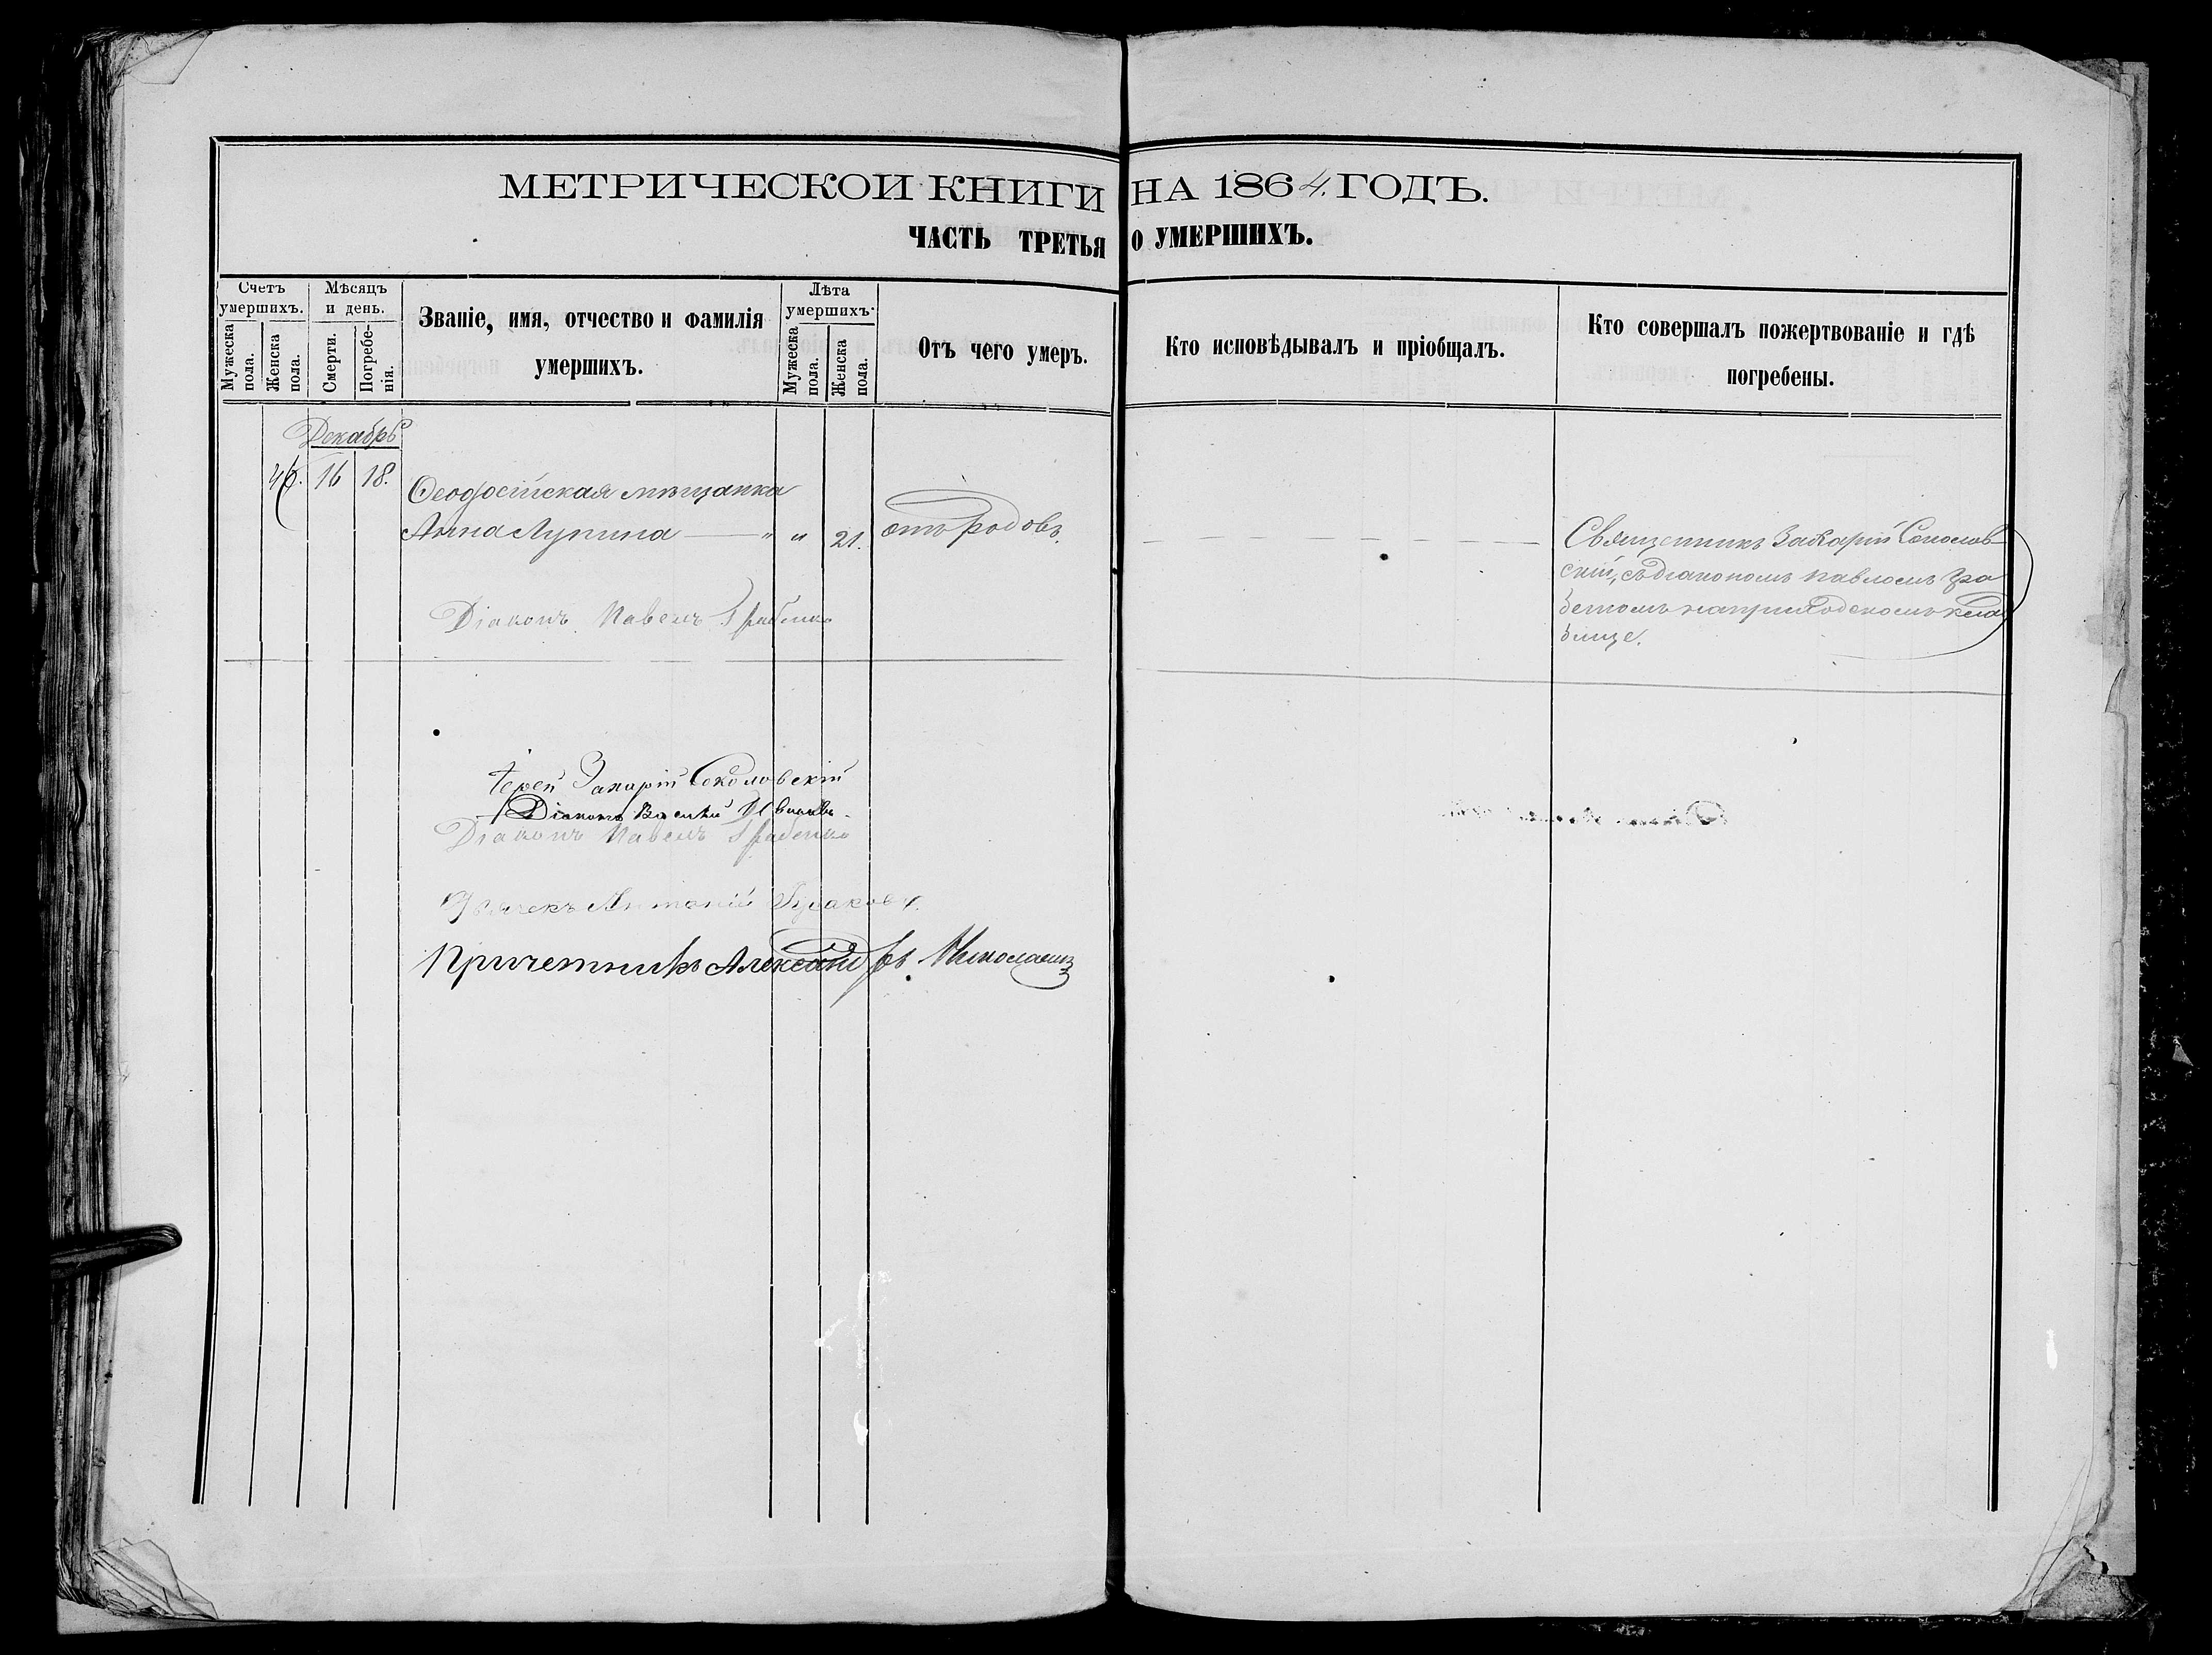 МЕТРИЧЕСКОИ КНИГИ НА 1864. ГОДЪ.
ЧАСТЬ ТРЕТЬЯ О УМЕРШИХЪ.
Счетъ умершихъ.
Мужеска пола.
Женска пола.
Мѣсяцъ и день.
Смерти.
Погребе-нія.
Званіе, имя, отчество и фамилія
умершихъ.
Лѣта умершихъ.
Мужеска пола.
Женска пола.
Отъ чего умеръ.
Кто исповѣдывалъ и пріобщалъ.
Кто совершалъ пожертвованіе и гдѣ
погребены.
Декабрь
46. 16 18. Ѳеодосійская мѣщанка
Анна Лупина — " " 21. отъ родовъ.
Священникъ Захарій Соколов-
скій, съ діакономъ Павломъ Гра
бенкомъ на приходскомъ кла
бище.
Діаконъ Павелъ Грабенко
Іерей Захарій Соколовскій
Діаконъ Василій Ивановъ
Діаконъ Павелъ Грабенко
Дьячекъ Антоній
Причетникъ Александръ Николаевъ